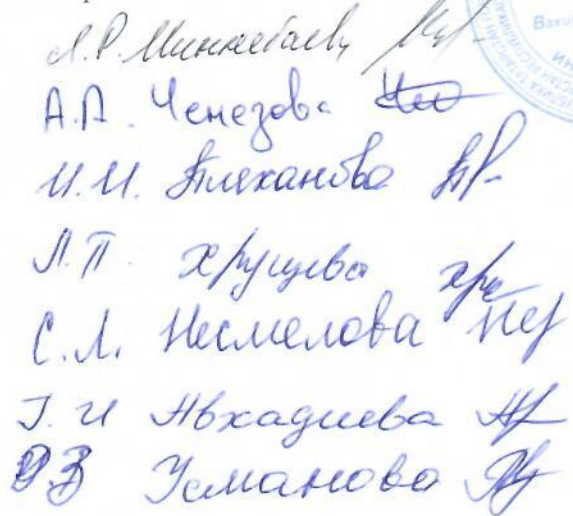 Л.Р. Миннебаева
А.А. Ченезова
И.И. Плеханова
Л.П. Хрущева
С.Л. Несмелова Нес
Г.И Авхадиева
Усманова